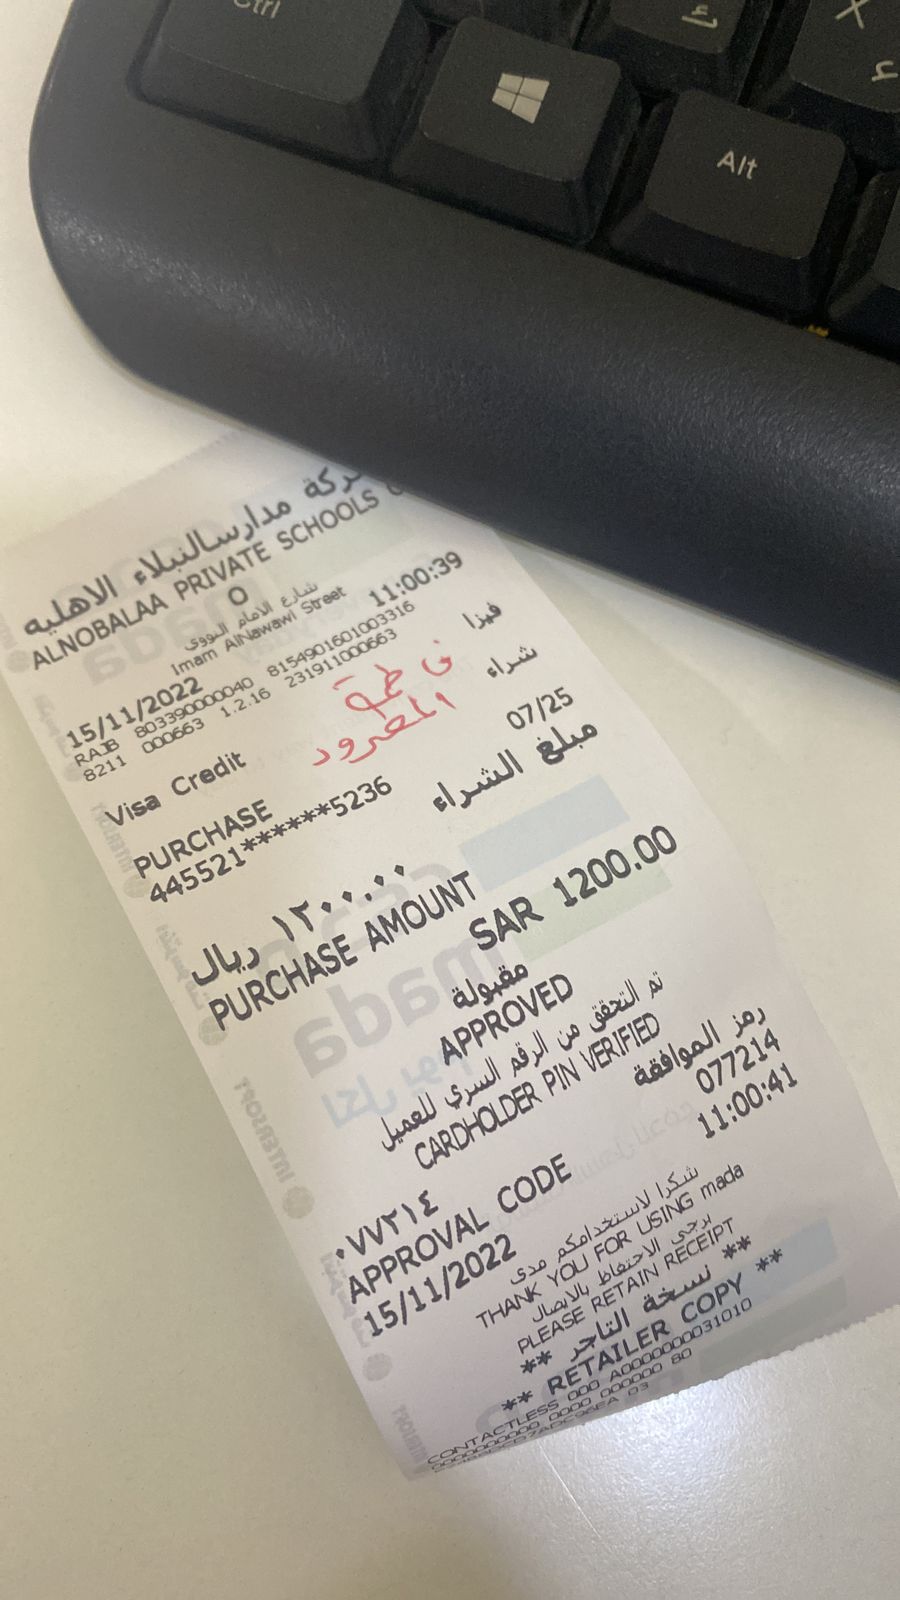 Ctrl
Alt
X
شركة مدارسالنبلاء الاهليه
ALNOBALAA PRIVATE SCHOOLS C
O
شارع الامام النووى
Imam AlNawawi Street
15/11/2022 11:00:39
RAJB 803390000040 8154901601003316
8211 000663 1.2.16 231911000663
فاطمة
Visa Credit فيزا
PURCHASE شراء
445521******5236 07/25
مبلغ الشراء
١٢٠٠.٠٠ ريال
PURCHASE AMOUNT
SAR 1200.00
مقبولة
APPROVED
تم التحقق من الرقم السري للعميل
CARDHOLDER PIN VERIFIED
رمز الموافقة
٠٧٧٢١٤
APPROVAL CODE 077214
15/11/2022 11:00:41
شكرا لاستخدامكم مدى
THANK YOU FOR USING mada
يرجى الاحتفاظ بالايصال
PLEASE RETAIN RECEIPT
** نسخة التاجر **
** RETAILER COPY **
CONTACTLESS 000 A0000000031010
0000000000 0000 000000 80